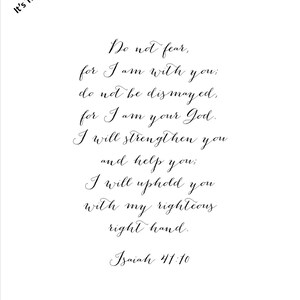 It's
Do not fear,
for I am with you;
do not be dismayed,
for I am your God.
I will strengthen you
and help you;
I will uphold you
with my righteous
right hand.
Isaiah 41:10